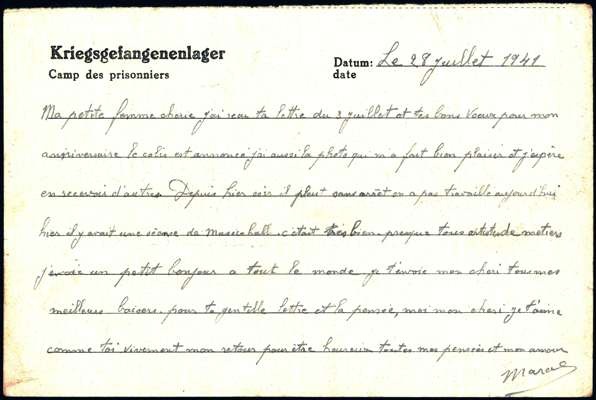 Kriegsgefangenenlager
Camp des prisonniers
Datum: Le 28 juillet 1941
date
Ma petite femme cherie j'ai recu ta lettre du 3 juillet et tes bons vœux pour mon
anniversaire le colis est annoncé j'ai aussi la photo qui m'a fait bien plaisir et j'espère
en recevoir d'autres Depuis hier soir il pleut sans arrêt on a pas travaille aujourd'hui
hier il y avait une séance de Music hall. c'était très bien presque tous artiste de metiers
j'envoie un petit bonjour a tout le monde je t'envoie mon cheri tous mes
meilleurs baisers pour ta gentille lettre et la pensée, moi mon cheri je t'aime
comme toi vivement mon retour pour être heureux toutes mes pensées et mon amour